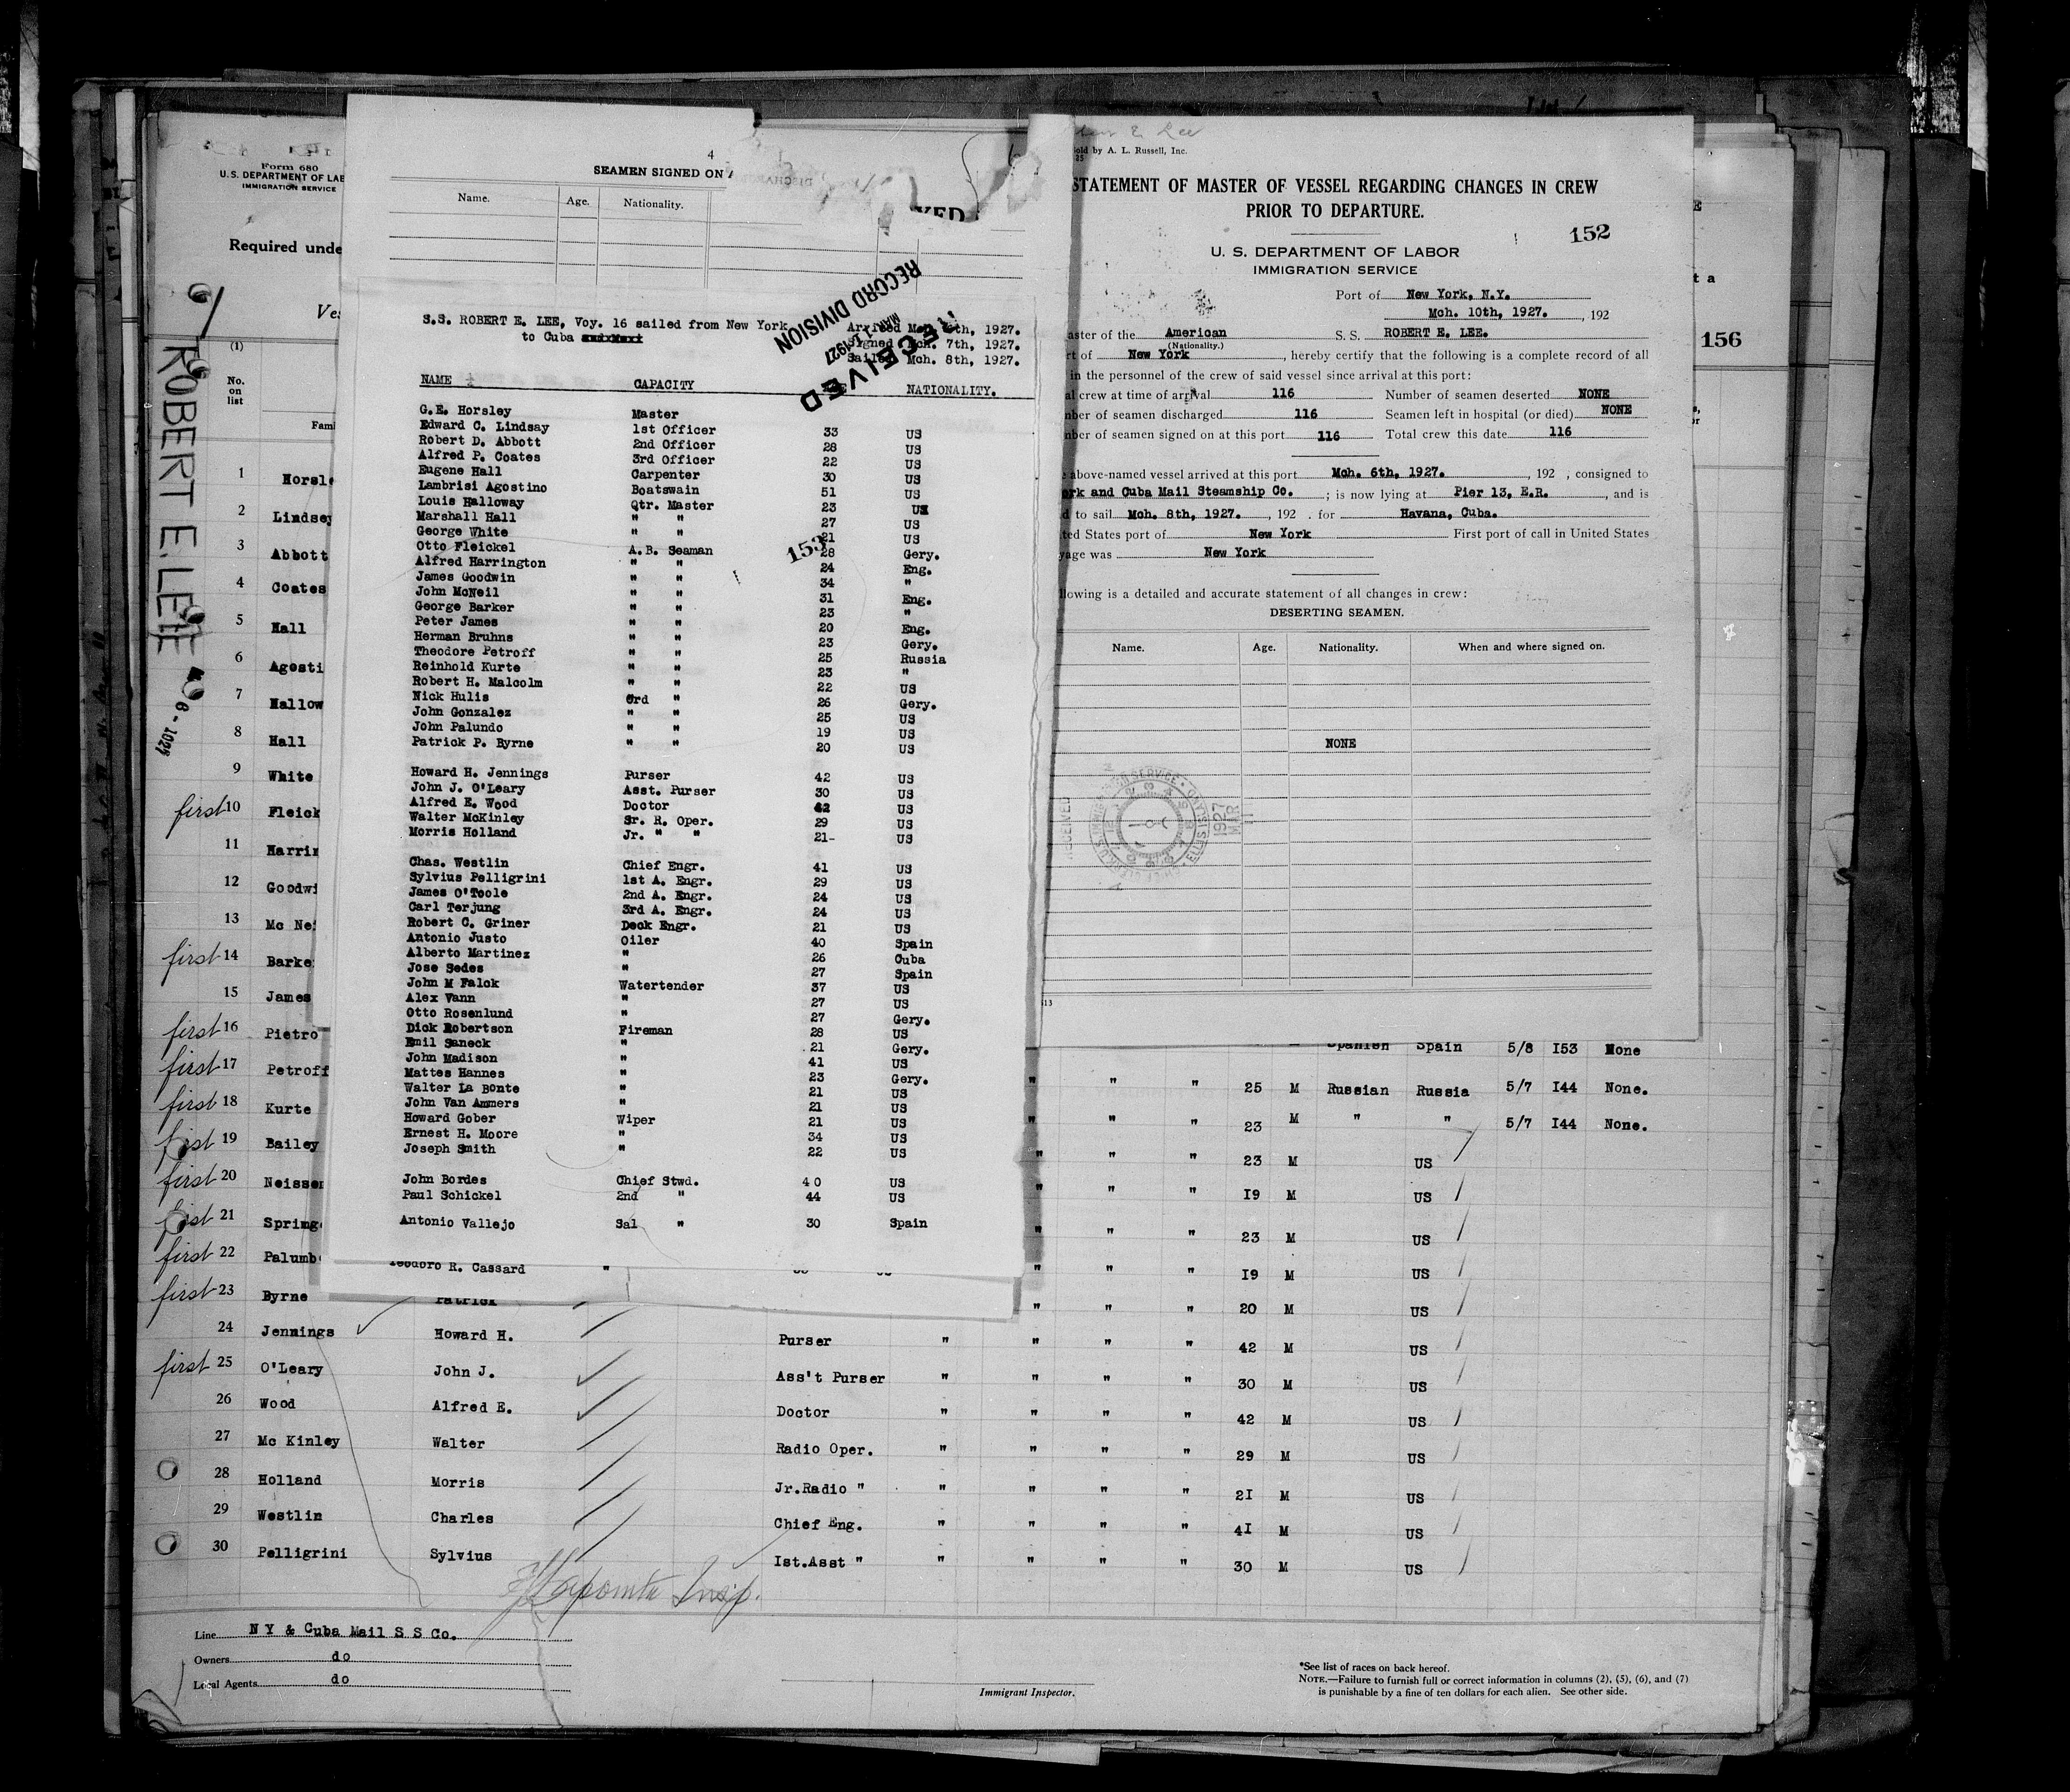 Form 680
U.S. DEPARTMENT OF LAB
IMMIGRATION SERVICE
Required unde
Ves
(1)
No.
on
list
Fami
ROBERT E. LEE
4
SEAMEN SIGNED ON A
Name. Age. Nationality.
S.S. ROBERT E. LEE, Voy. 16 sailed from New York
to Cuba
Arrived Mch. 6th, 1927.
Signed Mch. 7th, 1927.
Sailed Mch. 8th, 1927.
RECEIVED
RECORD DIVISION
NAME CAPACITY NATIONALITY.
G.E. Horsley Master
Edward C. Lindsay 1st Officer 33 US
Robert D. Abbott 2nd Officer 28 US
Alfred P. Coates 3rd Officer 22 US
Eugene Hall Carpenter 30 US
Lambrisi Agostino Boatswain 51 US
Louis Halloway Qtr. Master 23 US
Marshall Hall " " 27 US
George White " " 21 US
Otto Fleickel A.B. Seaman 28 Gery.
Alfred Harrington " " 24 Eng.
James Goodwin " " 34 "
John McNeil " " 31 Eng.
George Barker " " 23 "
Peter James " " 20 Eng.
Herman Bruhns " " 23 Gery.
Theodore Petroff " " 25 Russia
Reinhold Kurte " " 23 "
Robert H. Malcolm " " 22 US
Nick Hulis Ord " 26 Gery.
John Gonzalez " " 25 US
John Palundo " " 19 US
Patrick P. Byrne " " 20 US
153
Howard H. Jennings Purser 42 US
John J. O'Leary Asst. Purser 30 US
Alfred E. Wood Doctor 42 US
Walter McKinley Sr. R. Oper. 29 US
Morris Holland Jr. " " 21- US
Chas. Westlin Chief Engr. 41 US
Sylvius Pelligrini 1st A. Engr. 29 US
James O'Toole 2nd A. Engr. 24 US
Carl Terjung 3rd A. Engr. 24 US
Robert C. Griner Deck Engr. 21 US
Antonio Justo Oiler 40 Spain
Alberto Martinez " 26 Cuba
Jose Sedes " 27 Spain
John M Falck Watertender 37 US
Alex Vann " 27 US
Otto Rosenlund " 27 Gery.
Dick Robertson Fireman 28 US
Emil Saneck " 21 Gery.
John Madison " 41 US
Mattes Hannes " 23 Gery.
Walter La Bonte " 21 US
John Van Ammers " 21 US
Howard Gober Wiper 21 US
Ernest H. Moore " 34 US
Joseph Smith " 22 US
John Bordes Chief Stwd. 40 US
Paul Schickel 2nd " 44 US
Antonio Vallejo Sal " 30 Spain
Teodoro R. Cassard "
old by A. L. Russell, Inc.
STATEMENT OF MASTER OF VESSEL REGARDING CHANGES IN CREW
PRIOR TO DEPARTURE.
152
U. S. DEPARTMENT OF LABOR
IMMIGRATION SERVICE
Port of New York, N.Y.
Mch. 10th, 1927. , 192
aster of the American S. S. ROBERT E. LEE.
(Nationality.)
rt of New York , hereby certify that the following is a complete record of all
in the personnel of the crew of said vessel since arrival at this port:
al crew at time of arrival 116 Number of seamen deserted NONE
mber of seamen discharged 116 Seamen left in hospital (or died) NONE
mber of seamen signed on at this port 116 Total crew this date 116
e above-named vessel arrived at this port Mch. 6th, 1927. , 192 , consigned to
ork and Cuba Mail Steamship Co. ; is now lying at Pier 13, E.R. , and is
d to sail Mch. 8th, 1927. , 192 . for Havana, Cuba.
ted States port of New York First port of call in United States
yage was New York
llowing is a detailed and accurate statement of all changes in crew:
DESERTING SEAMEN.
Name. Age. Nationality. When and where signed on.
NONE
156
1 Horsle
2 Lindsey
3 Abbott
4 Coates
5 Hall
6 Agosti
7 Hallow
8 Hall
9 White
first 10 Fleick
11 Harrin
12 Goodwi
13 Mc Nei
first 14 Barke
15 James
first 16 Pietro Spanish Spain 5/8 153 None
first 17 Petroff " " " 25 M Russian Russia 5/7 144 None.
first 18 Kurte " " " 23 M " " 5/7 144 None.
first 19 Bailey " " " 23 M US
first 20 Neissen " " " 19 M US
first 21 Spring " " " 23 M US
first 22 Palumb " " " 19 M US
first 23 Byrne Patrick " " " 20 M US
24 Jennings Howard H. Purser " " " " 42 M US
first 25 O'Leary John J. Ass't Purser " " " " 30 M US
26 Wood Alfred E. Doctor " " " " 42 M US
27 Mc Kinley Walter Radio Oper. " " " " 29 M US
28 Holland Morris Jr.Radio " " " " " 21 M US
29 Westlin Charles Chief Eng. " " " " 41 M US
30 Pelligrini Sylvius Ist.Asst " " " " " 30 M US
Insp.
Line N Y & Cuba Mail S S Co.
Owners do
Local Agents do
Immigrant Inspector.
*See list of races on back hereof.
NOTE.—Failure to furnish full or correct information in columns (2), (5), (6), and (7)
is punishable by a fine of ten dollars for each alien. See other side.